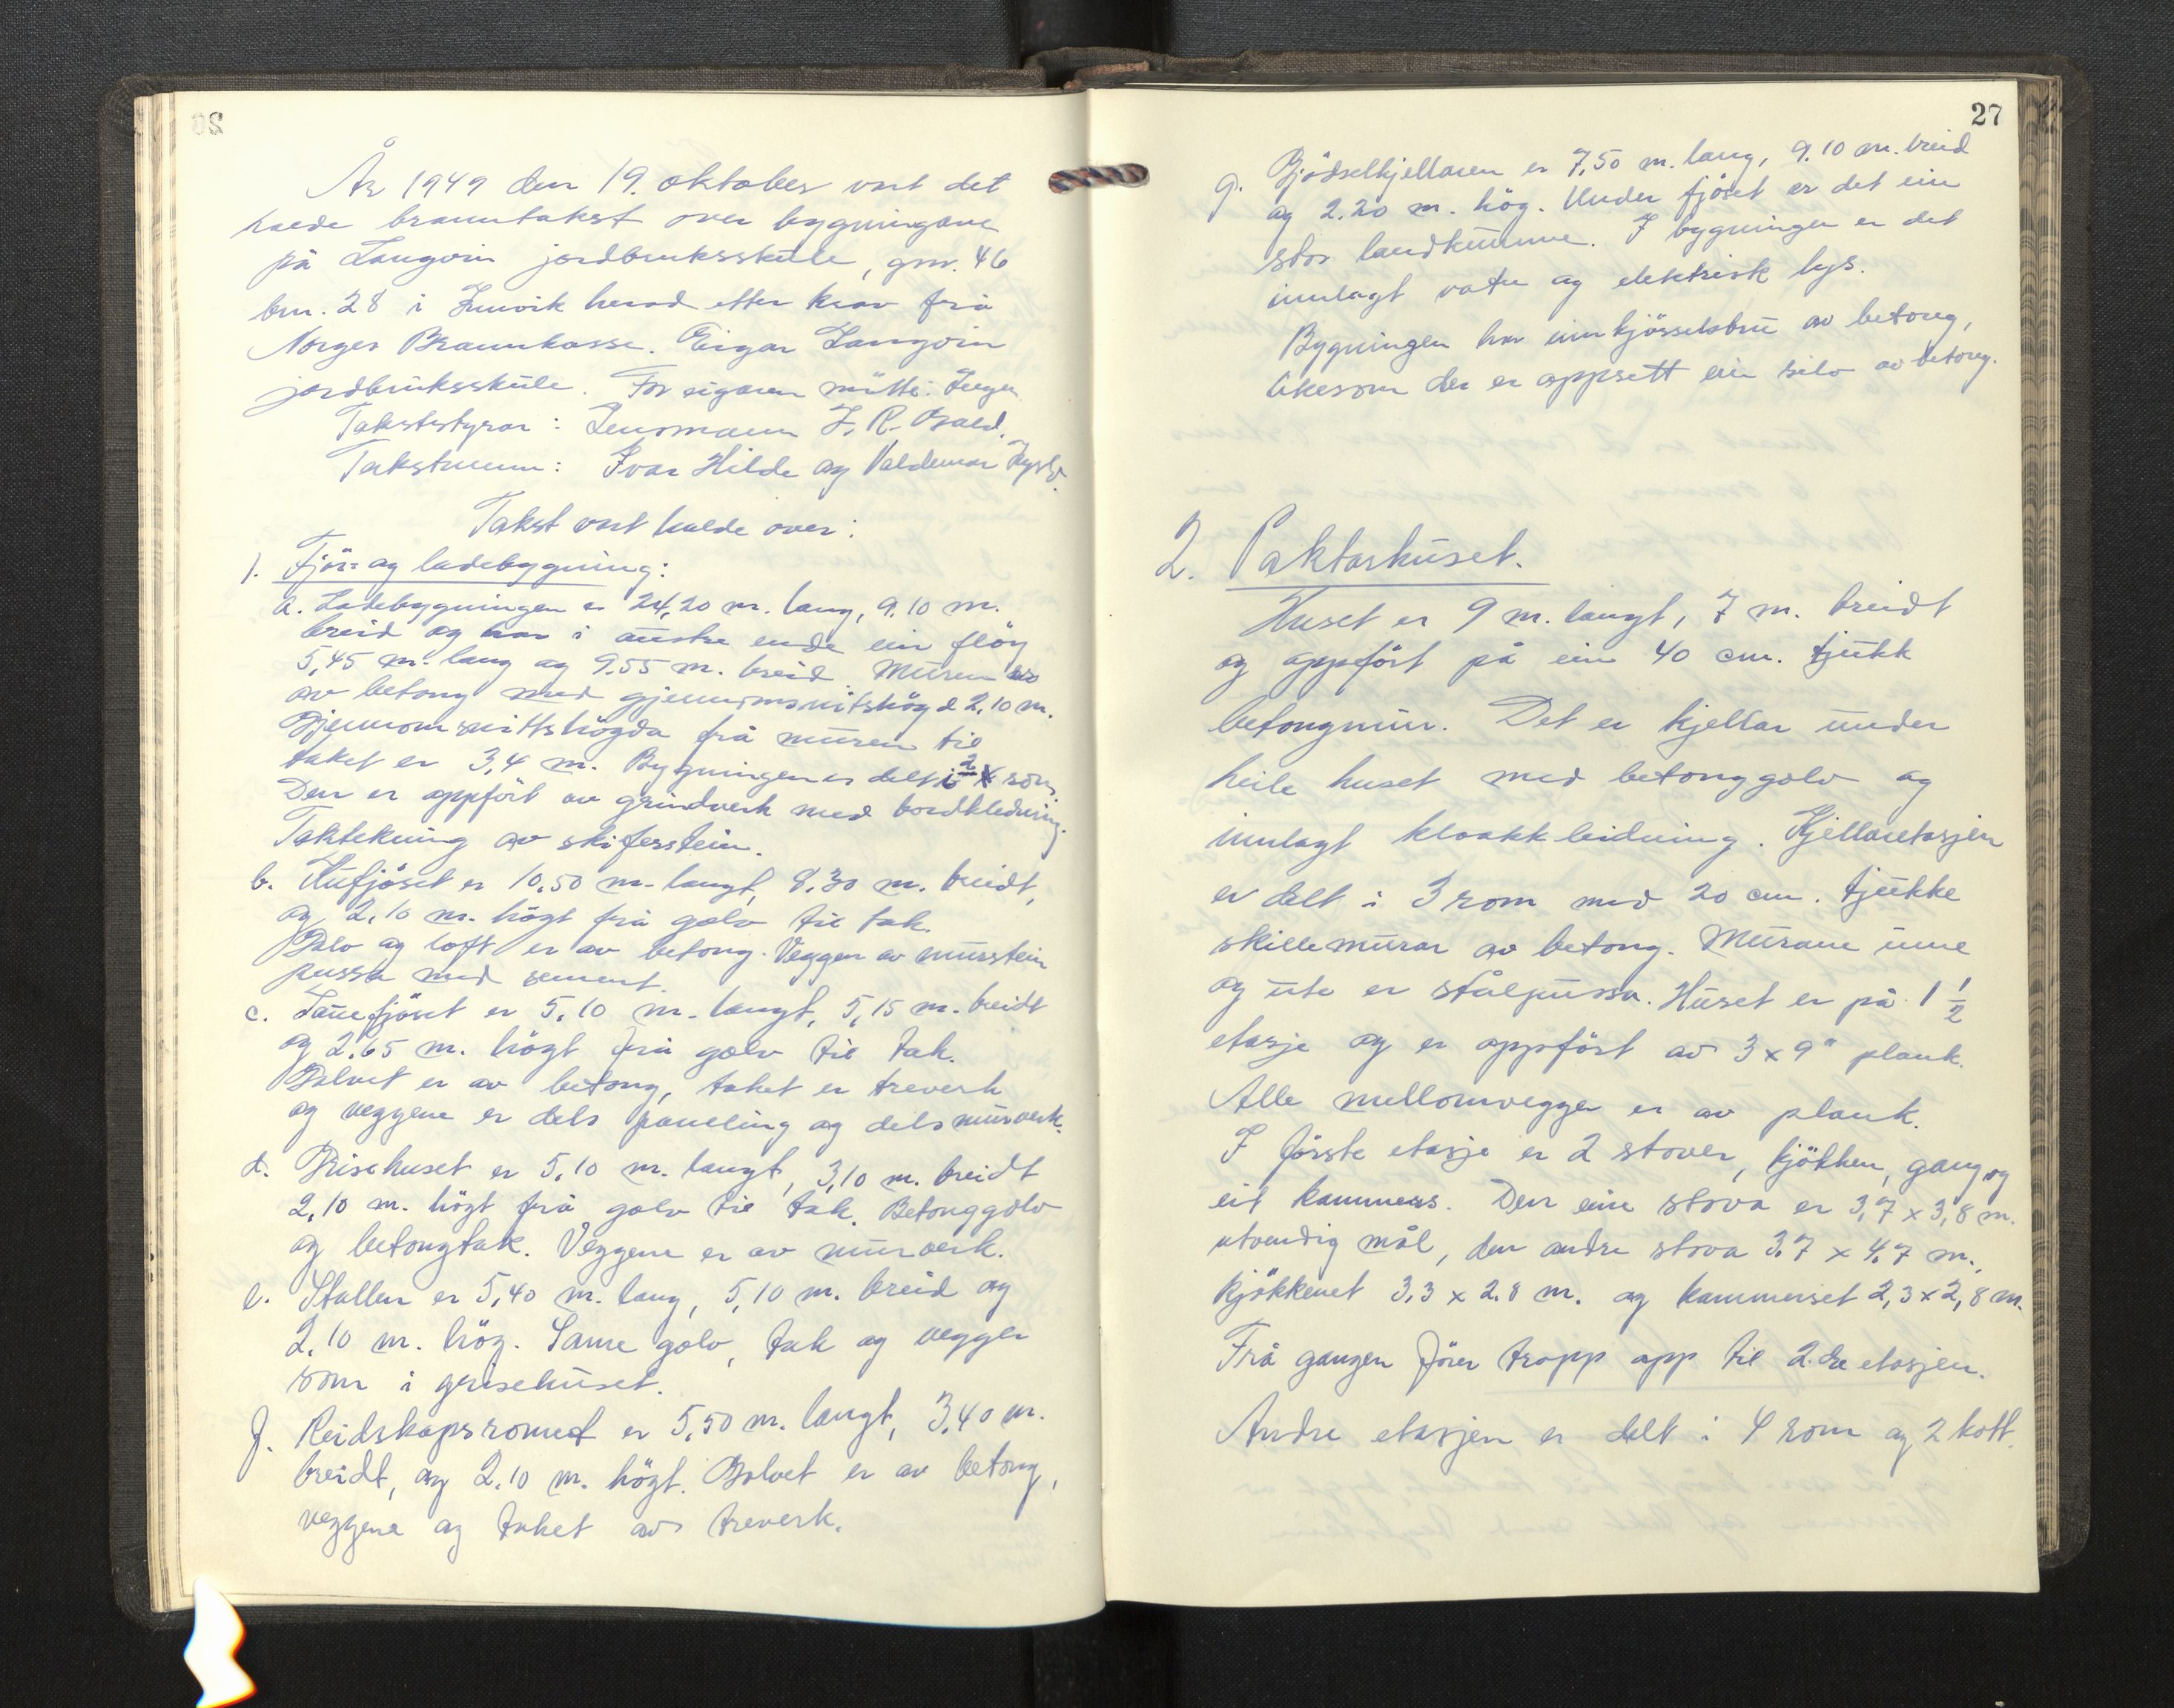 År 1949 den 19. oktober vart det
halde branntakst over bygningane
på Langvin jordbruksskule, gnr. 46
bnr. 28 i Innvik herad etter krav frå
Norges Brannkasse. Eigar Langvin
jordbruksskule. For eigaren møtte: Ingen
Takststyrar: Lensmann J. R.
Takstmenn: Ivar Hilde og Valdemar
Takst vart halde over:
1. Fjøs- og ladebygning:
a. Ladebygningen er 24,20 m. lang, 9.10 m.
breid og har i austre ende ein fløy
5,45 m. lang og 9.55 m. breid. Muren er
av betong med gjennomsnitshøgd 2,10 m.
Gjennomsnittshøgda frå muren til
taket er 3,4 m. Bygningen er delt i 2 rom.
Den er oppført av grindverk med bordkledning.
Taktekning av skiferstein.
b. Kufjøset er 10,50 m. langt, 8,30 m. breidt,
og 2.10 m. høgt frå golv til tak.
Golv og loft er av betong. Veggen av murstein
pussa med sement.
c. Sauefjøset er 5,10 m. langt, 5,15 m. breidt
og 2.65 m. høgt frå golv til tak.
Golvet er av betong, taket er treverk
og veggene er dels paneling og dels murverk.
d. Grisehuset er 5,10 m. langt, 3,10 m. breidt
2,10 m. høgt frå golv til tak. Betonggolv
og betongtak. Veggene er av murverk.
e. Stallen er 5,40 m. lang, 5,10 m. breid og
2.10 m. høg. Same golv, tak og vegger
som i grisehuset.
f. Reidskapsromet er 5,50 m. langt, 3,40 m.
breidt, og 2.10 m. høgt. Golvet er av betong,
veggene og taket av treverk.
27
g. Gjødselkjellaren er 7,50 m. lang, 9.10 m. breid
og 2.20 m. høg. Under fjøset er det ein
stor landkumme. I bygningen er det
innlagt vatn og elektrisk lys.
Bygningen har innkjøsselsbru av betong,
likesom der er oppsett ein silo av betong.
2. Paktarhuset.
Huset er 9 m. langt, 7 m. breidt
og oppført på ein 40 cm. tjukk
betongmur. Det er kjellar under
heile huset med betonggolv og
innlagt kloakkleidning. Kjellaretasjen
er delt i 3 rom med 20 cm. tjukke
skillemurar av betong. Murane inne
og ute er stålpussa. Huset er på 1 1/2
etasje og er oppført av 3 x 9" plank.
Alle mellomvegger er av plank.
I første etasje er 2 stover, kjøkken, gang og
eit kammers. Den eine stova er 3,7 x 3,8 m.
utvendig mål, den andre stova 3,7 x 4,7 m.,
kjøkkenet 3,3 x 2.8 m. og kammerset 2,3 x 2,8 m.
Frå gangen fører tropp opp til 2.dre etasjen.
Andre etasjen er delt i 4 rom og 2 kott.